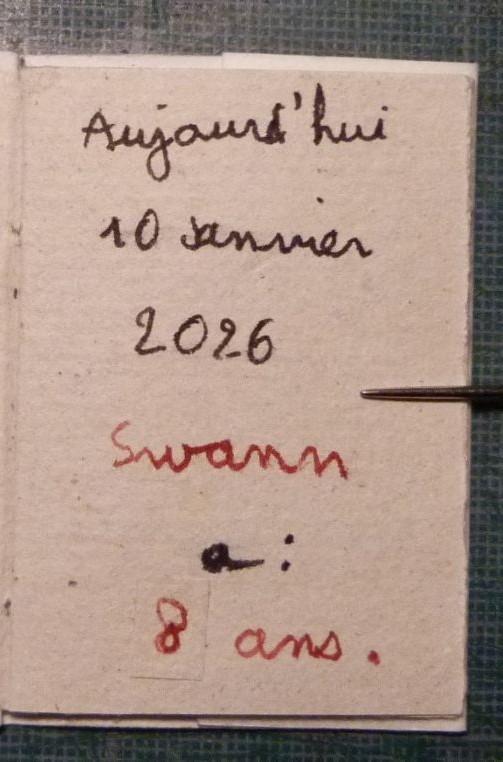 Aujourd'hui
10 janvier
2026
Swann
a :
8 ans.